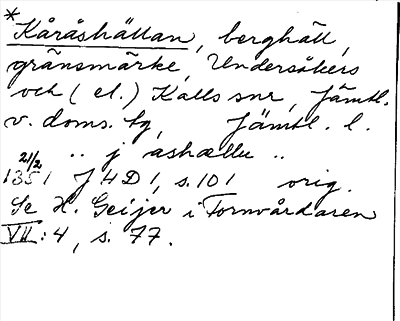 *
Kåråshällan, berghäll,
gränsmärke, Undersåkers
och (el.) Kalls snr, Jämtl.
v. doms. tg, Jämtl. l.
21/2 .. j ashællu ..
1351 JHD 1, s. 101 orig.
Se H. Geijer i Fornvårdaren
VII:4, s. 77.